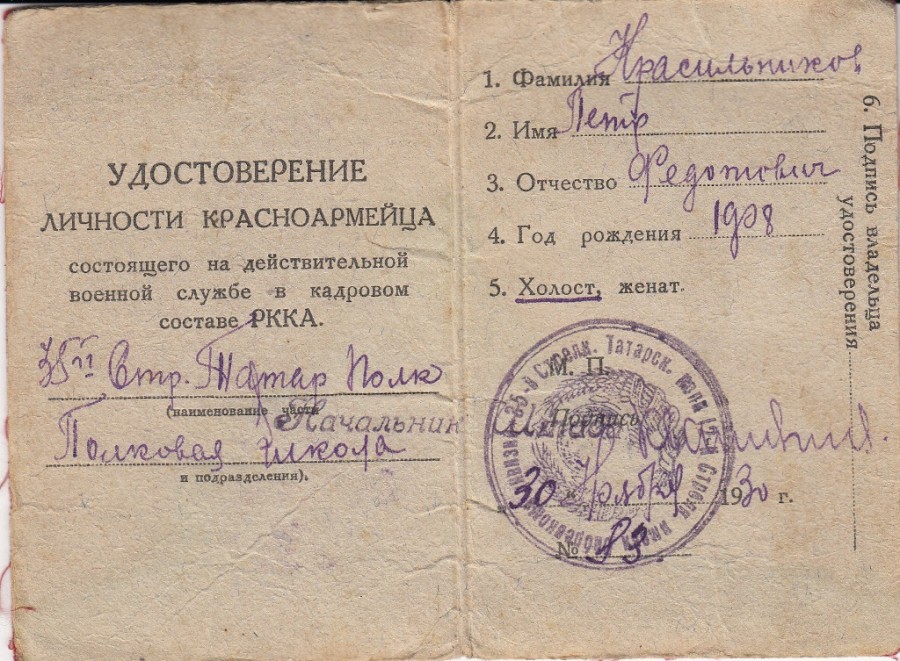 УДОСТОВЕРЕНИЕ
ЛИЧНОСТИ КРАСНОАРМЕЙЦА
состоящего на действительной
военной службе в кадровом
составе РККА.
35й Стр. Татар Полк
(наименование части
Полковая школа
и подразделения).
Начальник
1. Фамилия Красильников
2. Имя Петр
3. Отчество Федотович
4. Год рождения 1908
5. Холост, женат.
М. П.
Подпись
30 1930 г.
№ 83.
35-й Стрелк. Татарск. полк
6. Подпись владельца
удостоверения